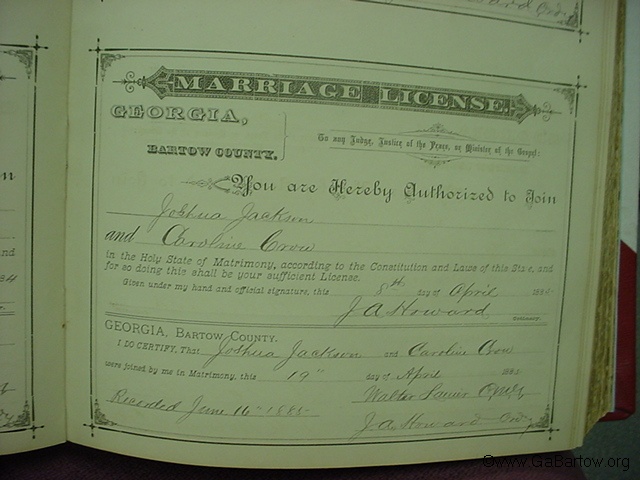 MARRIAGE LICENSE.
GEORGIA,
BARTOW COUNTY.
To any Judge, Justice of the Peace, or Minister of the Gospel:
You are Hereby Authorized to Join
Joshua Jackson
and Caroline Crow
in the Holy State of Matrimony, according to the Constitution and Laws of this State, and
for so doing this shall be your sufficient License.
Given under my hand and official signature, this 8th day of April 1885
J A Howard Ordinary.
GEORGIA, BARTOW COUNTY.
I DO CERTIFY, That Joshua Jackson and Caroline Crow
were joined by me in Matrimony, this 19" day of April 1885
Walter
Recorded June 16" 1885
J A Howard Ord'y
©www.GaBartow.org